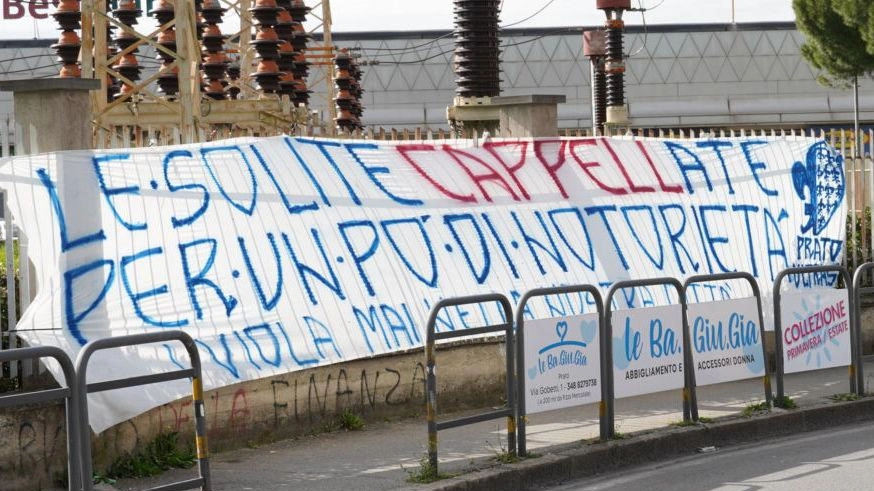 LE·SOLITE CAPPELLATE
PER·UN·PO'·DI·NOTORIETÁ
VIOLA MAI NELLA NOSTRA
PRATO
ULTRAS
FINANZA
le Ba.Giu.Gia
Prato
Via Gobetti, 1 - 348 8279738
le Ba. Giu.Gia
ABBIGLIAMENTO E ACCESSORI DONNA
COLLEZIONE
PRIMAVERA / ESTATE